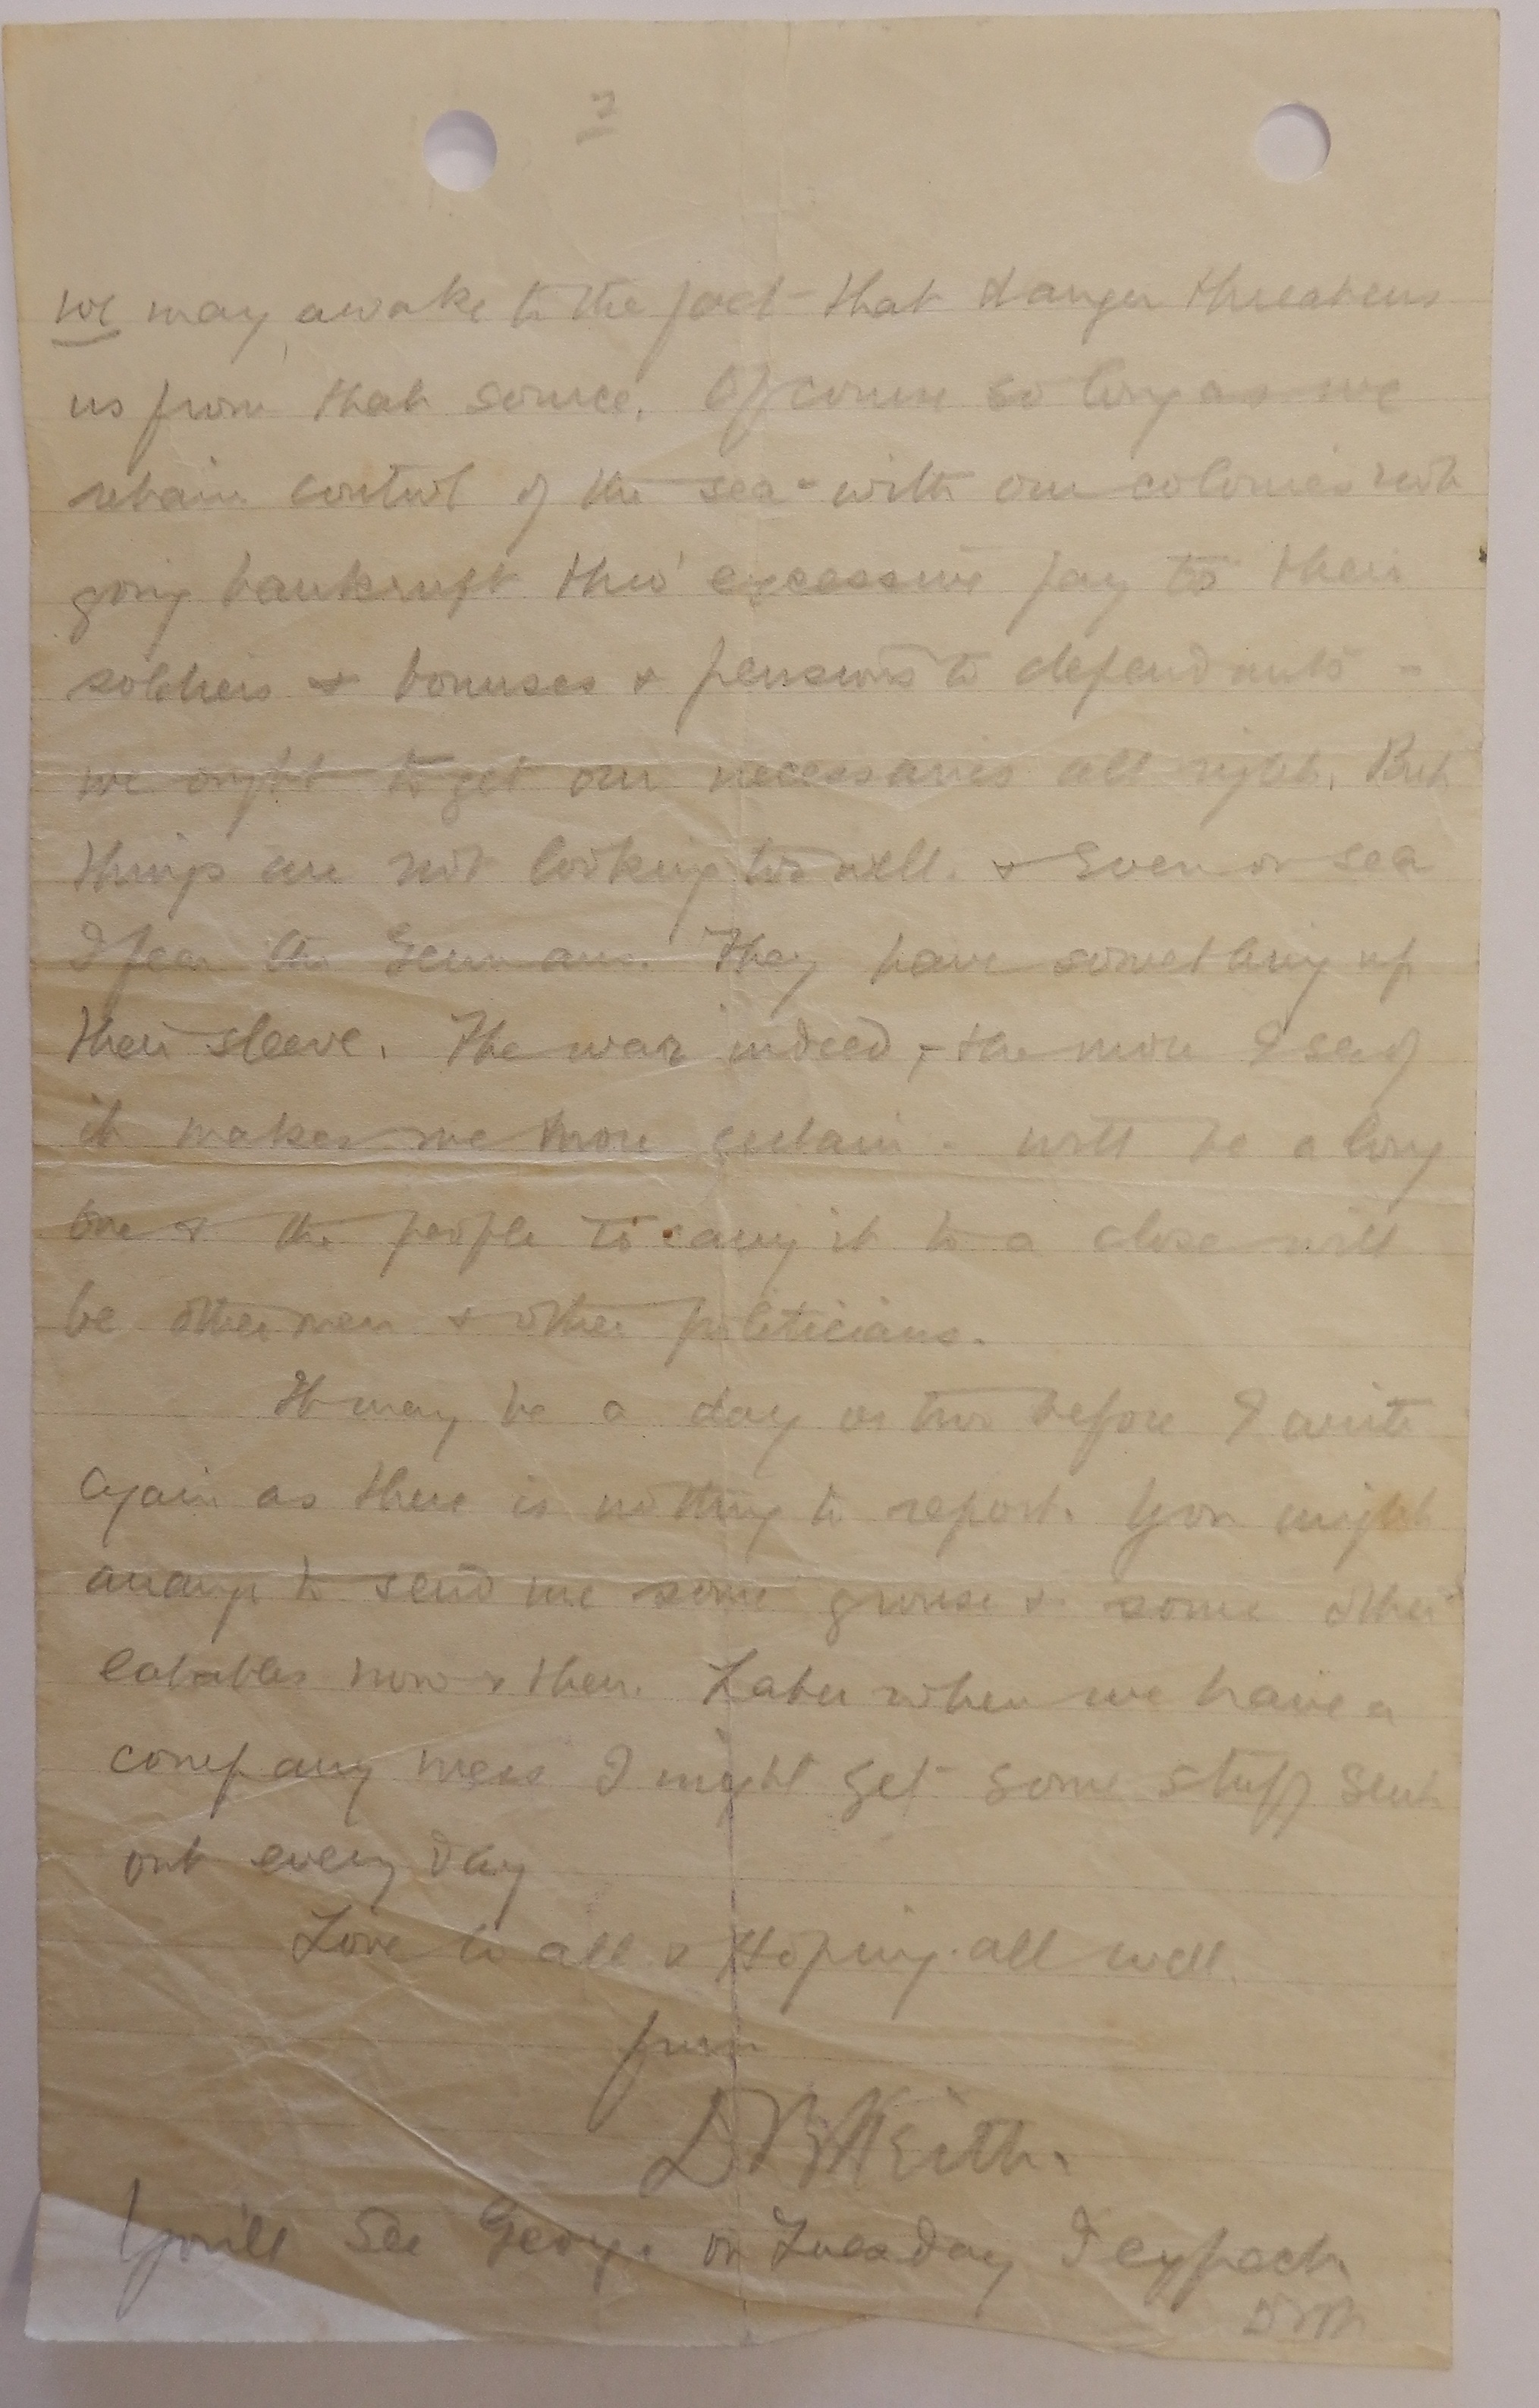 7
we may awake to the fact that danger threatens
us from that source. Of course so long as we
retain control of the sea - with our colonies not
going bankrupt thro' excessive pay to their
soldiers & bonuses & pensions to dependants -
we ought to get our necessaries all right. But
things are not looking too well. & Even on sea
I fear the Germans. They have something up
their sleeve. The war indeed, - the more I see of
it makes me more certain - will be a long
one & the people to carry it to a close will
be other men & other politicians.
It may be a day or two before I write
again as there is nothing to report. You might
arrange to send me some grouse & some other
eatables now & then. Later when we have a
company mess I might get some stuff sent
out every day
Love to all & Hoping all well
from
D B Keith.
You'll see George on Tuesday I expect.